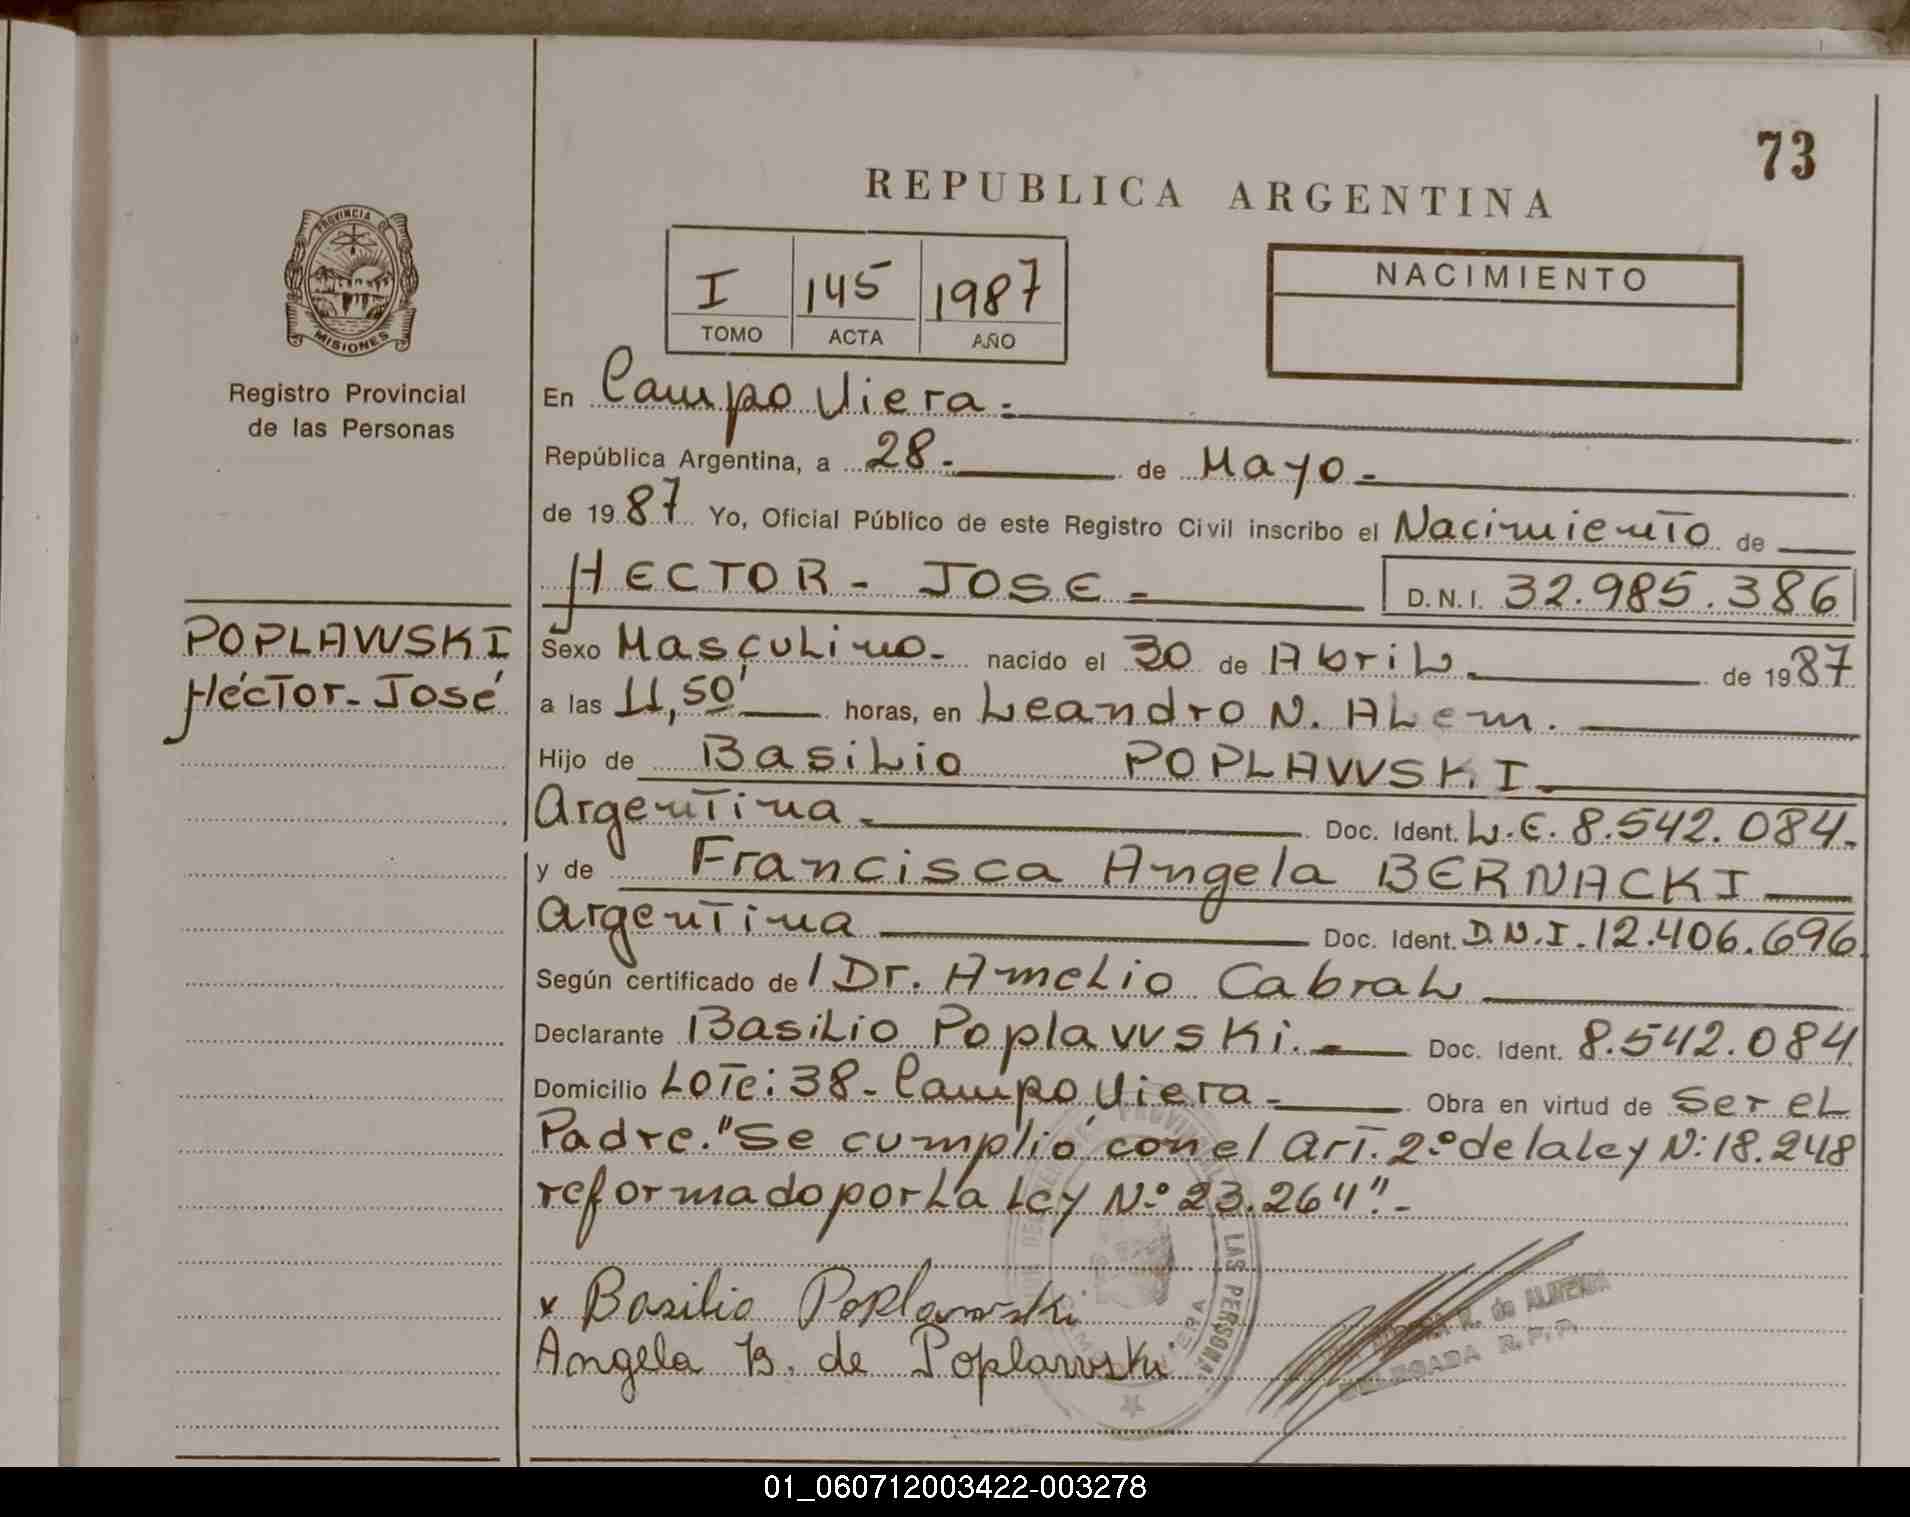 73
REPUBLICA ARGENTINA
PROVINCIA DE
MISIONES
Registro Provincial
de las Personas
I 145 1987
TOMO ACTA AÑO
NACIMIENTO
En Campo Viera.
República Argentina, a 28.- de Mayo.-
de 19 87 Yo, Oficial Público de este Registro Civil inscribo el Nacimiento de
HECTOR - JOSE - D.N.I. 32.985.386
POPLAWSKI
Héctor-José
Sexo Masculino.- nacido el 30 de Abril de 19 87
a las 11,50' horas, en Leandro N. Alem.
Hijo de Basilio POPLAWSKI
Argentina.- Doc. Ident. L.E. 8.542.084.-
y de Francisca Angela BERNACKI
Argentina Doc. Ident. D.N.I. 12.406.696
Según certificado de / Dr. Amelio Cabral
Declarante Basilio Poplawski.- Doc. Ident. 8.542.084
Domicilio Lote: 38- Campo Viera.- Obra en virtud de Ser el
Padre. "Se cumplió con el Art. 2º de la ley N: 18.248
reformado por La Ley Nº 23.264".-
x Basilio Poplawski
Angela B. de Poplawski
LAS PERSONA
de ALMEIDA
DELEGADA R.P.P.
01_060712003422-003278